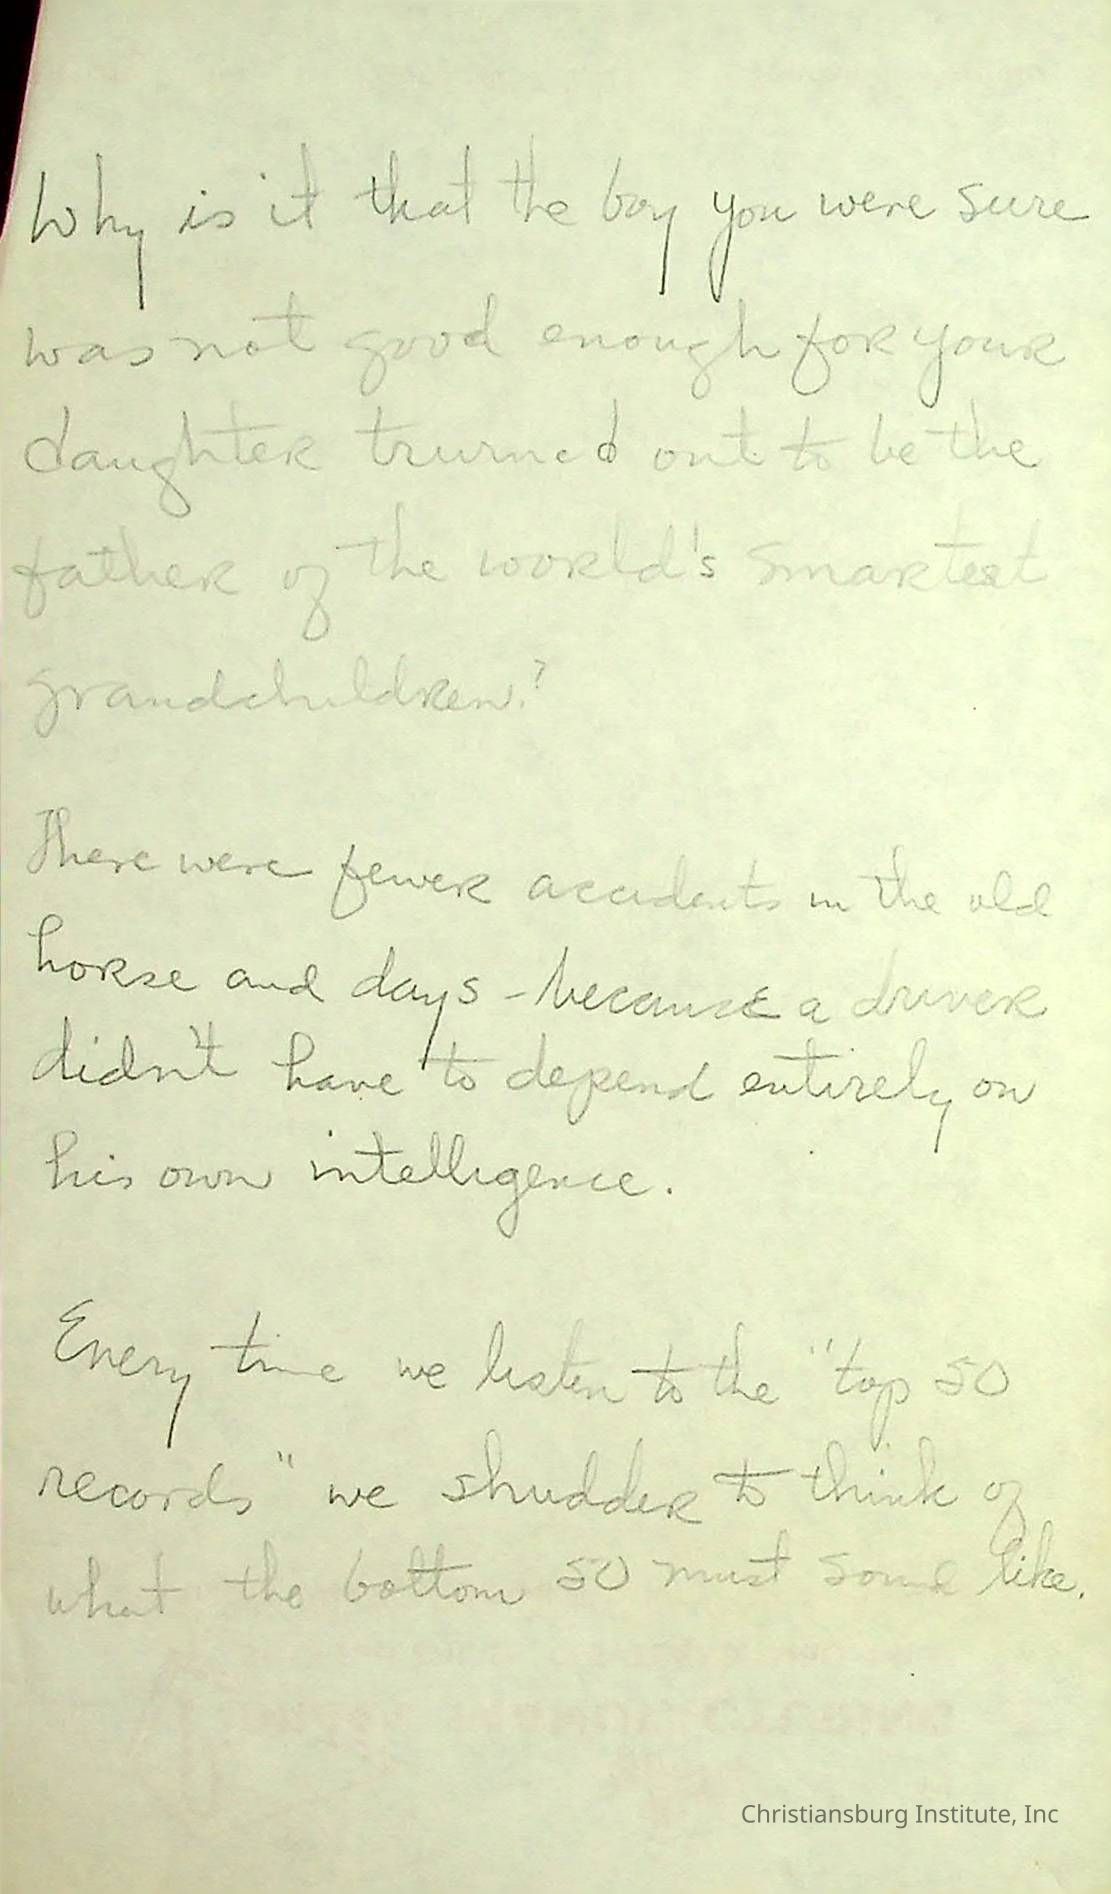 Why is it that the boy you were sure
was not good enough for your
daughter trurned out to be the
father of the world's smartest
grandchildren?
There were fewer accidents in the old
horse and days - because a driver
didn't have to depend entirely on
his own intelligence.
Every time we listen to the "top 50
records" we shudder to think of
what the bottom 50 must sound like.
Christiansburg Institute, Inc